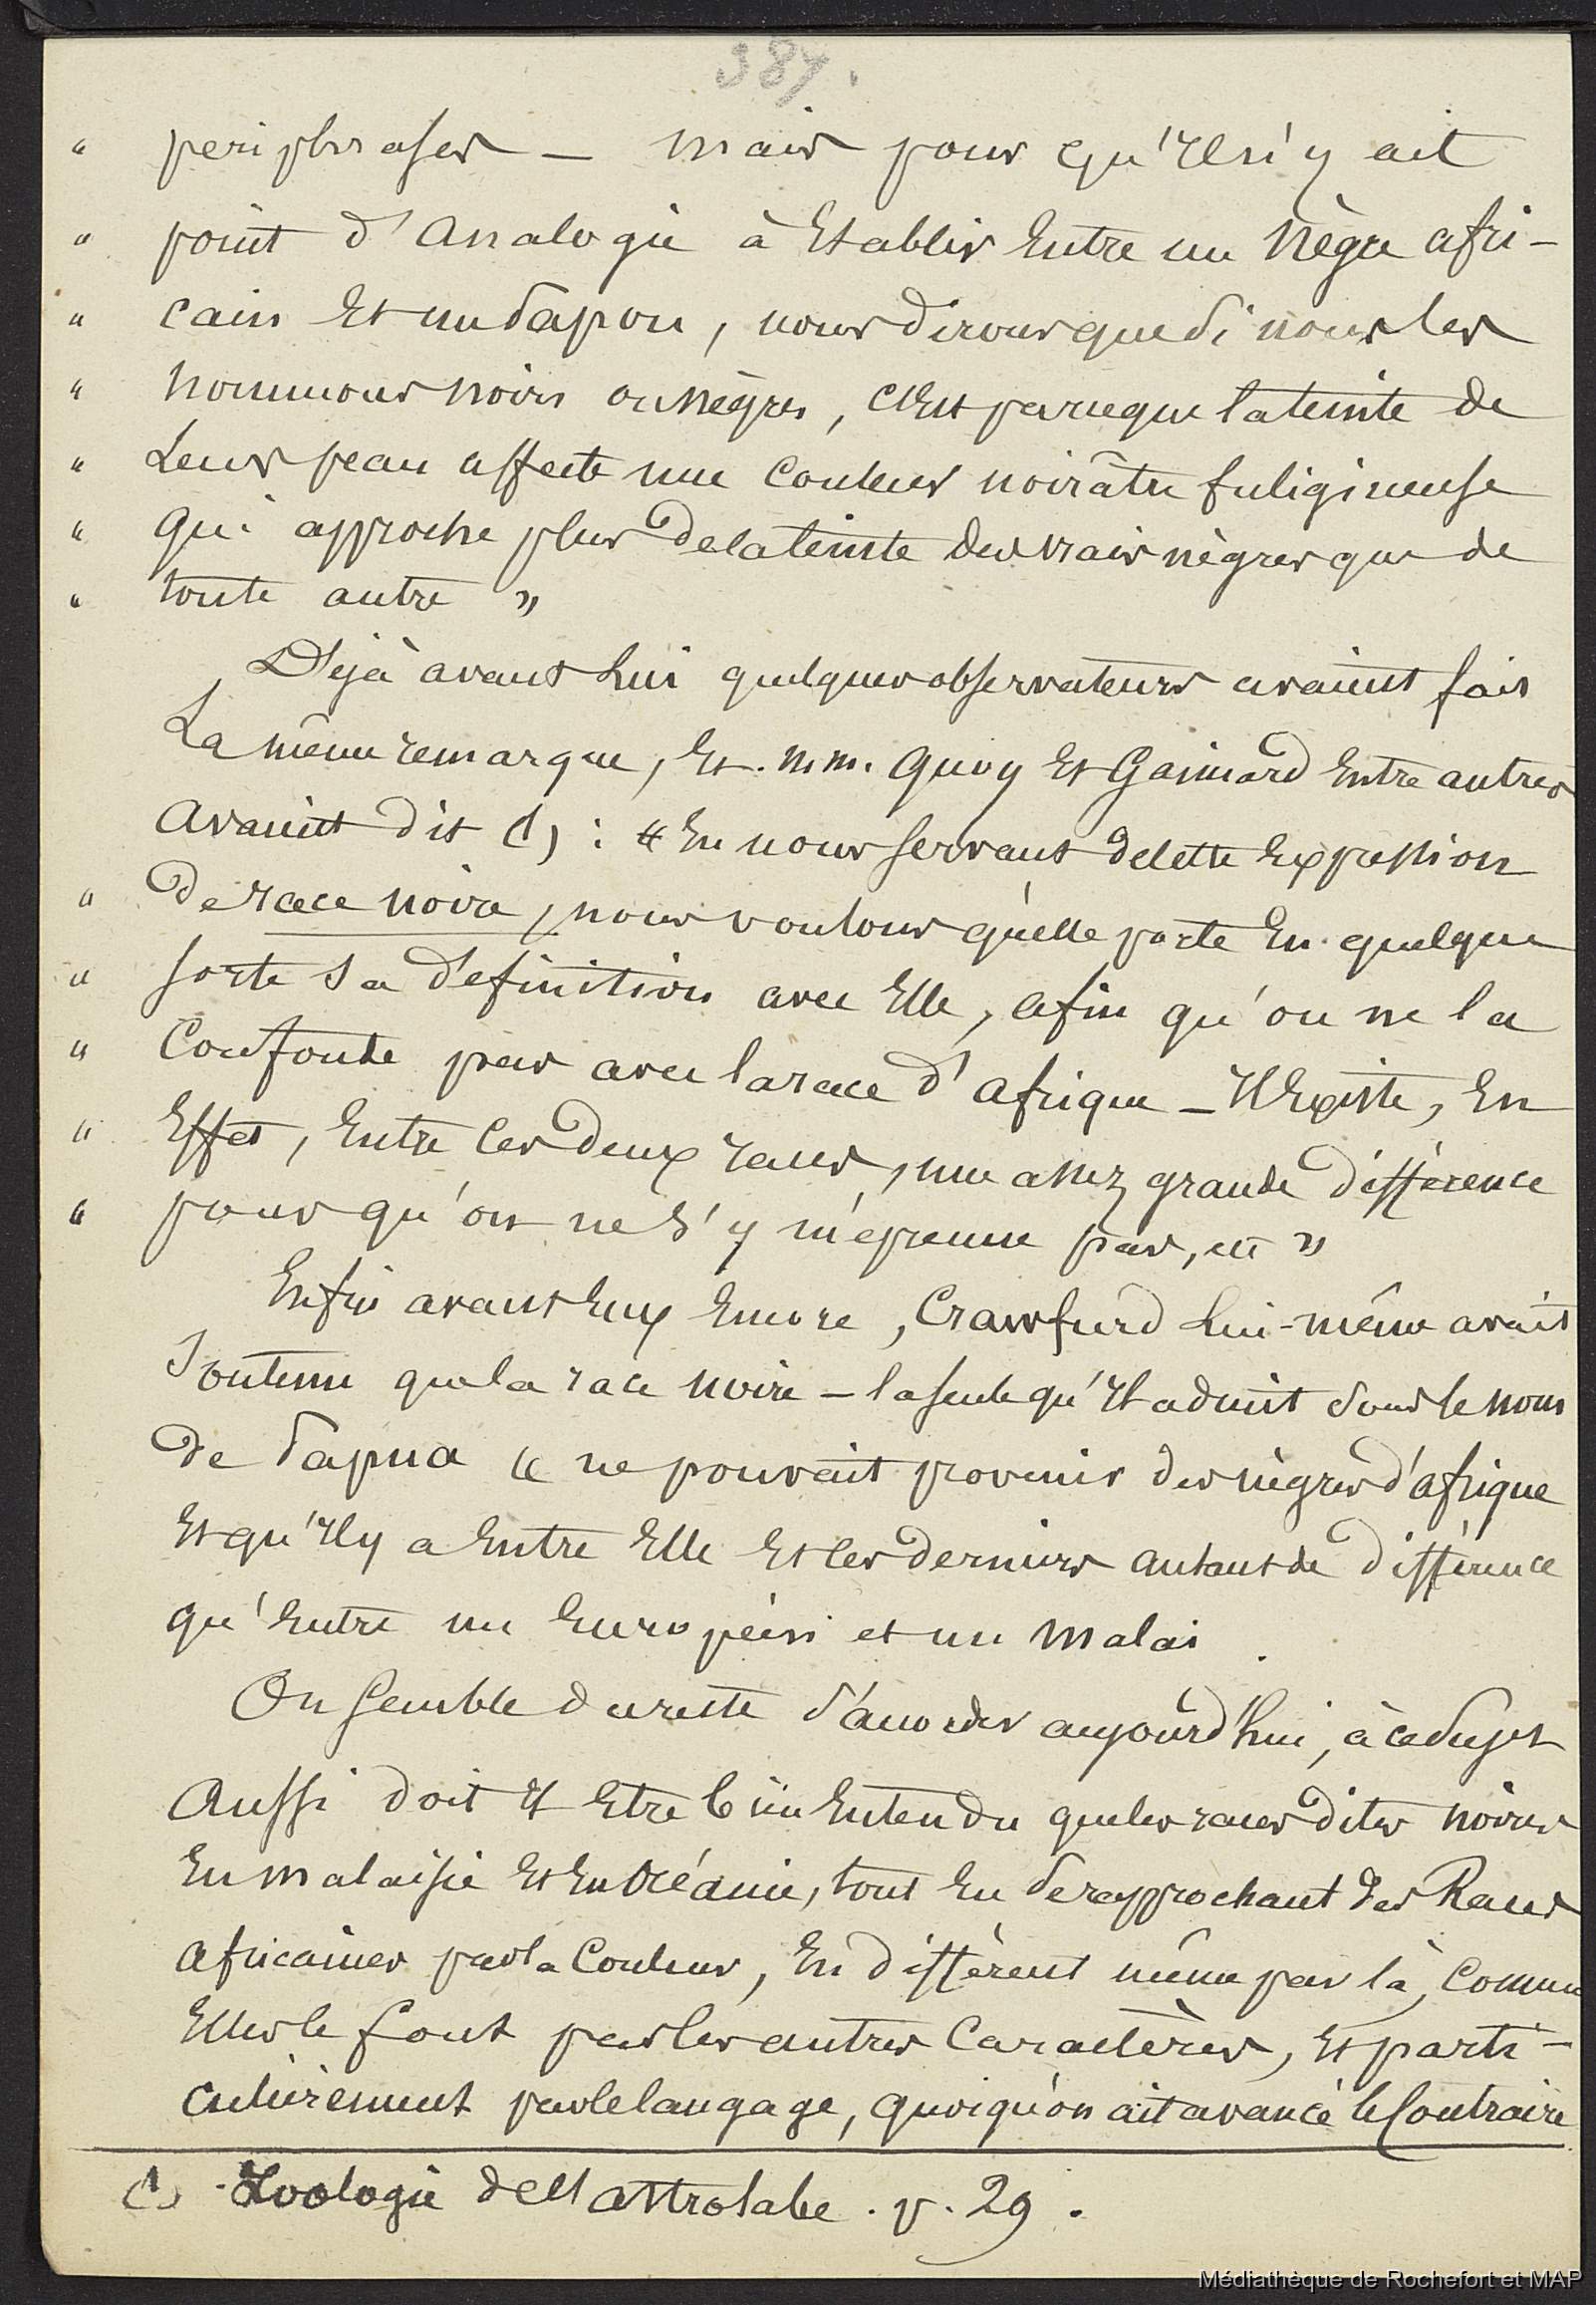 387.
" periphrases — mais pour qu'il n'y ait
" point d'analogie à Etablir Entre un Nègre afri-
" cain Et un Papou, nous dirons que si nous les
" nommons noirs ou nègres, c'Est parceque la teinte de
" Leur peau affecte une couleur noirâtre fuligineuse
" qui approche plus de la teinte des vrais nègres que de
" toute autre "
Déjà avant Lui quelques observateurs avaient fait
La même remarque, Et. M.M. Quoy Et Gaimard Entre autres
avaient dit (1) : " En nous servant de cette Expression
" De race noire, nous voulons qu'elle porte En quelque
" sorte sa définition avec Elle, afin qu'on ne la
" Confonde pas avec la race d'afrique — Il Existe, En
" Effet, Entre ces deux races, une assez grande différence
" pour qu'on ne s'y méprenne pas, etc "
Enfin avant Eux Encore, Crawfurd Lui-même avait
soutenu que la race noire — la seule qu'il admit sous le nom
de Papua " ne pouvait provenir des nègres d'afrique
Et qu'il y a Entre Elle Et ces derniers autant de différence
qu'Entre un Européen et un Malai.
On semble du reste s'accorder aujourd'hui, à ce sujet
Aussi doit il Etre bien Entendu que les races dites noires
En Malaisie Et En Océanie, tout En se rapprochant des Races
africaines par la Couleur, En diffèrent même par là, comme
Elles le font par les autres Caractères, Et parti-
culièrement par le langage, quoiqu'on ait avancé le Contraire
(1) Zoologie de l'astrolabe. p. 29.
Médiathèque de Rochefort et MAP